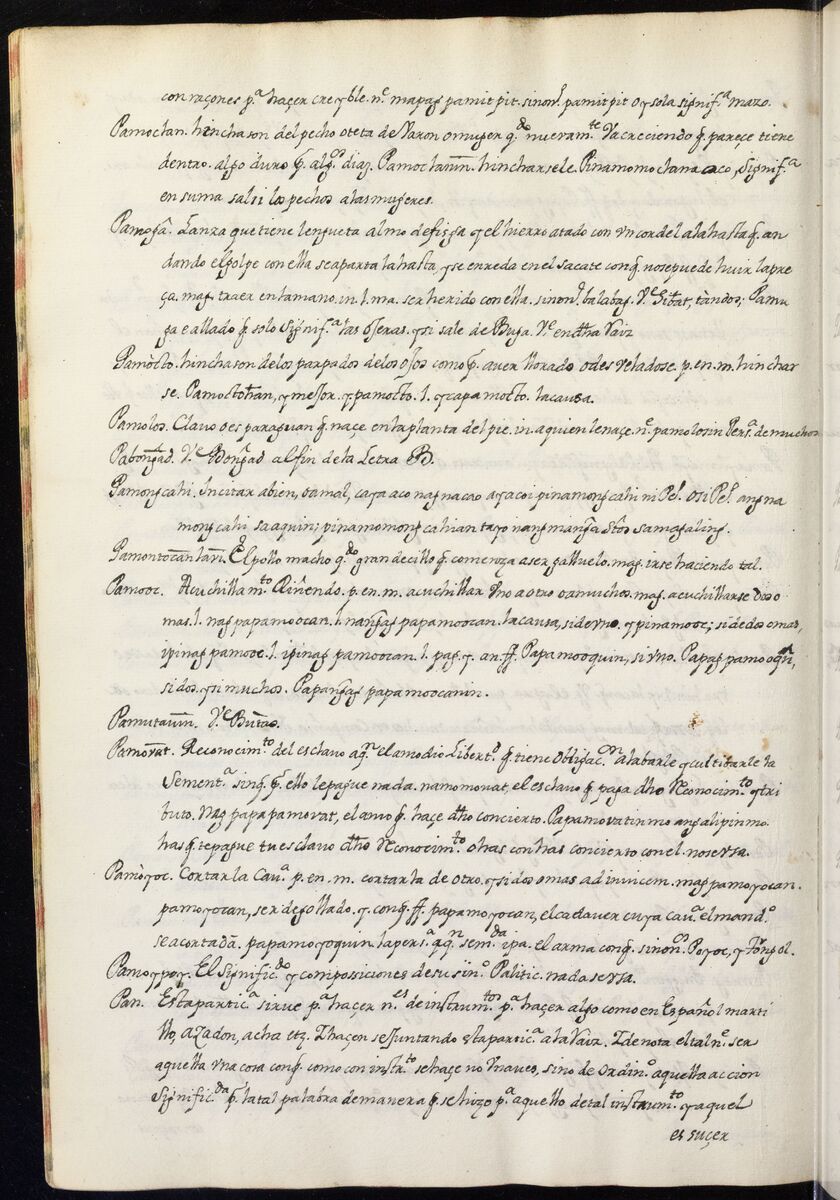 con raçones p.ª haçer creyble. n.e mapag pamitpit. sinon.l pamitpit o y sola signif.ª mazo.
Pamoctan. hinchason del pecho o teta de Varon o muger q.do nueram.te va creciendo q. pareçe tiene
dentro algo duro p. alg.os dias. Pamoctanm. hincharsele. Pinamomoctana aco, signif.ª
en suma salsi los pechos a las mugeres.
Pamoga. Lanza que tiene lengueta al mo de fisga y el hierro atado con vn cordel a la hasta q. an
dando el golpe con ella se aparta la hasta, y se enreda en el sacate con q. no se puede huir la pre
ça. mag. traer en la mano. in. l. ma. ser herido con ella. sinon.l balabag. V.e Sibat, tandos; Pamu
ga e allado q. solo signif.ª las ojeras. y si sale de Buga. V.e en dha raiz
Pamòcto. hinchason de los parpados de los ojos como p. aver llorado o desveladose. p. en. m. hinchar
se. Pamoctohan, y mejor. ypamocto. l. ycapamocto. la causa.
Pamolos. Clavo o es paraguan q. naçe en la planta del pie. in. a quien le naçe. n.e pamolosin Pers.ª de muchos
Pabongad. V.e Bongad al fin de la Letra B.
Pamongcahi. Incitar a bien, o a mal, caya aco nagnacao ay acoi pinamongcahi ni Pe.l o si Pe.l ang na
mongcahi sa aquin; pinamomongcahian tayo nang manga Stos sa magaling.
Pamontocantan. El pollo macho q.do grandecillo q. comenza a ser galluelo. mag. irse haciendo tal.
Pamooc. Acuchillam.to Riñendo. p. en. m. acuchillar vno a otro o a muchos. mag. acuchillarse dos o
mas. l. nag papamoocan. l. nangag papamoocan. la causa, si de vno. y pinamooc; si de dos o mas,
ipinag pamooc. l. ipinag pamoocan. l. pag. y. an. ff. Papamooquin, si vno. Papagpamooq.n,
si dos. y si muchos. Papangag papamoocanin.
Pamutaum. V.e Butao.
Pamovat. Reconocim.to del esclavo a q.n el amo dio Libert.d q. tiene obligac.on a labarle y cultibarle la
sement.ª sin q. p. ello le pague nada. namomovat, el esclavo q. paga dho reconocim.to y tri
buto. Nag papapamovat, el amo q. haçe dho concierto. Papamovatin mo ang alipin mo.
haz q. te pague tu esclavo dho reconocim.to o has contras concierto con el. no se vsa.
Pamòyoc. Cortar la Cav.ª p. en. m. cortarla de otro. y si dos o mas ad invicem. mag pamoyocan.
pamoyocan, ser degollado. y con q. ff. papamoyocan, el cadaver cuya cav.ª el mand.o
sea cortada. papamoyoquin. la pers.ª q q.n sem.da ipa. el arma con q. sinon.os Poyoc, y Pongol.
Pamoypoy. El signific.do y composiciones de su sin.o Palitic. nada se vsa.
Pan. Esta partic.ª sirve p.ª haçer n.es de instrum.tos p.ª haçer algo como en Español marti
llo, azadon, acha etz. Y haçense juntando esta partic.ª a la raiz. Y denota el tal n.e ser
aquella vna cosa con q. como con instr.to se haçe no vna ves, sino de ordin.o aquella accion
signific.da p. la tal palabra de manera q. se hizo p.ª aquello de tal instrum.to y aquel
es su çer